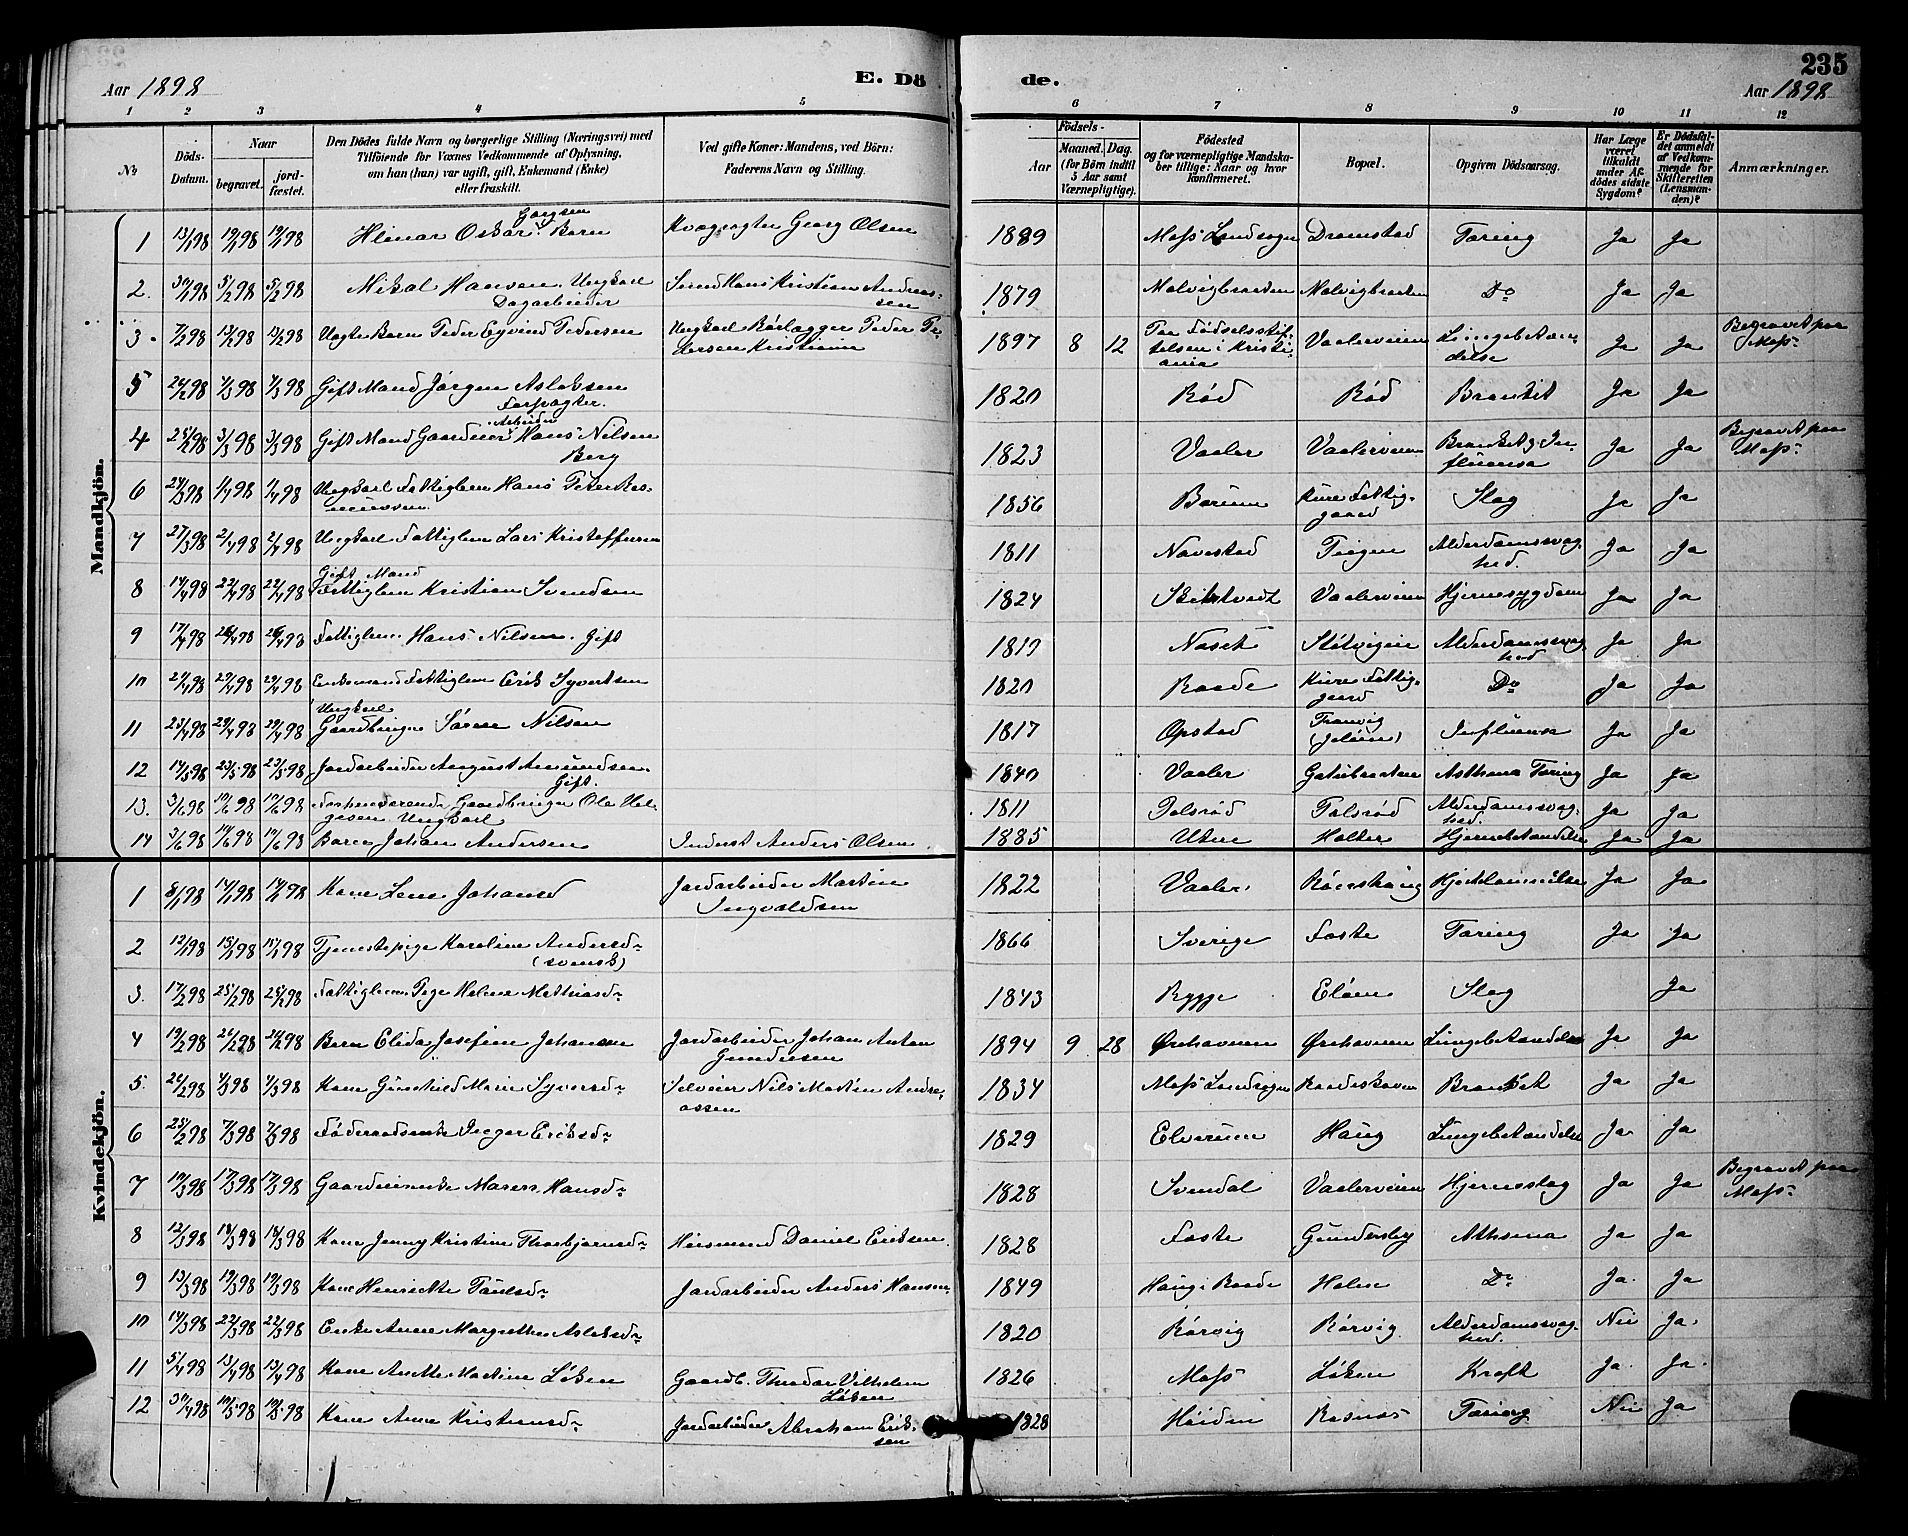 235
Aar 1898
E. Dö
de.
Aar 1898
1 2 3 4 5 6 7 8 9 10 11 12
No
Döds-
Datum.
Naar
begravet.
jord-
fæstet.
Den Dödes fulde Navn og borgerlige Stilling (Næringsvei) med
Tilföiende for Voxnes Vedkommende af Oplysning,
om han (hun) var ugift, gift, Enkemand (Enke)
eller fraskilt.
Ved gifte Koner: Mandens, ved Börn:
Faderens Navn og Stilling.
Födsels-
Aar
Maaned. Dag.
(for Börn indtil
5 Aar samt
Værnepligtige).
Födested
og for værnepligtige Mandska-
ber tillige: Naar og hvor
konfirmeret.
Bopæl.
Opgiven Dödsaarsag.
Har Læge
været
tilkaldt
under Af-
dödes sidste
Sygdom?
Er Dödsfal-
det anmeldt
af Vedkom-
mende for
Skifteretten
(Lensman-
den)?
Anmærkninger.
Mandkjön.
1 13/1 98 19/1 98 19/1 98 Hemar Oskar Barn Georg Olsen 1889 Moss Landsogn Dramstad Tæring Ja Ja
2. 30/1 98 5/2 98 5/2 98 Mikal Hansen. Ungkarl Hans Kristian Andreas- 1879 Molvigbraaten Molvigbraaten Do Ja Ja
Dagarbeider
sen
3. 7/2 98 13/2 98 13/2 98 Uægte Barn Peder Eyvind Pedersen Ungkarl Rørlægger Peder Pe- 1897 8 12 Paa Fødselsstif- Vaalerveien Lungebetæn- Ja Ja Begravet paa
dersen Kristiania telsen i Kristi- delse Moss
ania
5 24/2 98 1/3 98 1/3 98 Gift Mand Jørgen Aslaksen 1820 Rød Rød Bronkit Ja Ja
Forpagter.
4 25/2 98 3/3 98 3/3 98 Gift Mand Hans Nilsen 1823 Vaaler Vaalerveien Bronkit, In- Ja Ja Begravet paa
Berg fluensa Moss
6 24/3 98 1/4 98 1/4 98 Ungkarl Fattiglem Hans Peter Ras- 1856 Bærum Kure Fattig- Slag Ja Ja
mussen. gaard
7 27/3 98 2/4 98 2/4 98 Ungkarl Fattiglem Lars Kristoffersen 1811 Navestad Teigen Alderdomssvag- Ja Ja
hed.
Gift Mand
8 14/4 98 22/4 98 22/4 98 Fattiglem Kristian Svendsen 1824 Skibtvedt Vaalerveien Hjernesygdom Ja Ja
9 17/4 98 26/4 98 26/4 98 Fattiglem. Hans Nilsen. Gift 1819 Alderdomssvag- Ja Ja
hed
10 24/4 98 29/4 98 29/4 98 Enkemand Fattiglem Erik Syvertsen 1820 Raade Kure Fattig- Do Ja Ja
gaard
Ungkarl
11 23/4 98 29/4 98 29/4 98 Gaardbruger Søren Nilsen 1817 Opstad (Jeløen) Influensa Ja Ja
12 14/5 98 23/5 98 23/5 98 Jordarbeider August Amundsen. 1840 Vaaler Asthma Tæring Ja Ja
Gift.
13. 3/6 98 10/6 98 10/6 98 Forhenværende Gaardbruger Ole Hel- 1811 Alderdomssvag- Ja Ja
gesen Ungkarl hed.
14 3/6 98 14/6 98 14/6 98 Barn Johan Andersen Inderst Anders Olsen 1885 Utne Holter Hjernebetændelse Ja Ja
Kvindekjön.
1 8/1 98 14/1 98 14/1 98 Kone Lene Johansd Jordarbeider Martin 1822 Vaaler Hjertelammelse Ja Ja
Ingvaldsen
2 12/1 98 15/1 98 15/1 98 Tjenestepige Karoline Andersdr 1866 Sverige Foste Tæring Ja Ja
(svensk)
3. 17/2 98 25/2 98 25/2 98 Fattiglem. Pige Helene Mathiasdr 1843 Rygge Eløen Slag Ja
4 19/2 98 26/2 98 26/2 98 Barn Elida Josefine Johansen Jordarbeider Johan Anton 1894 9 28 Ørehavnen Ørehavnen Lungebetændelse Ja Ja
Gundersen
5. 26/2 98 4/3 98 4/3 98 Kone Gunhild Marie Syversdr Selveier Nils Martin Andre- 1834 Moss Landsogn Raadeskoven Bronkit Ja Ja
assen
6 25/2 98 7/3 98 7/3 98 Føderaadsenke Inger Eriksdr 1829 Elverum Haug Lungebetændelse Ja Ja
7 10/3 98 17/3 98 17/3 98 Gaardmandsenke Maren Hansdr 1828 Svendal Vaalerveien Hjerneslag Ja Ja Begravet paa
Moss
8 12/3 98 18/3 98 18/3 98 Kone Jenny Kristine Thorbjørnsdr Husmand Daniel Eriksen. 1828 Foste Gundersby Athsma Ja Ja
9 13/3 98 19/3 98 19/3 98 Kone Henriette Paulsdr Jordarbeider Anders Hansen 1849 Haug i Raade Holen Do Ja. Ja
10 14/3 98 22/3 98 22/3 98 Enke Anne Margrethe Aslaksdr 1820 Rørvig Rørvig Alderdomssvag- Nei Ja
hed.
11 5/4 98 13/4 98 13/4 98 Kone Anette Martine Løken Gaardb. Theodor Vilhelm 1826 Moss Løken Kræft Ja Ja
Løken
12 30/4 98 10/5 98 10/5 98 Kone Anne Kristiansdr Jordarbeider Abraham Erik- 1828 Tæring Nei Ja
sen